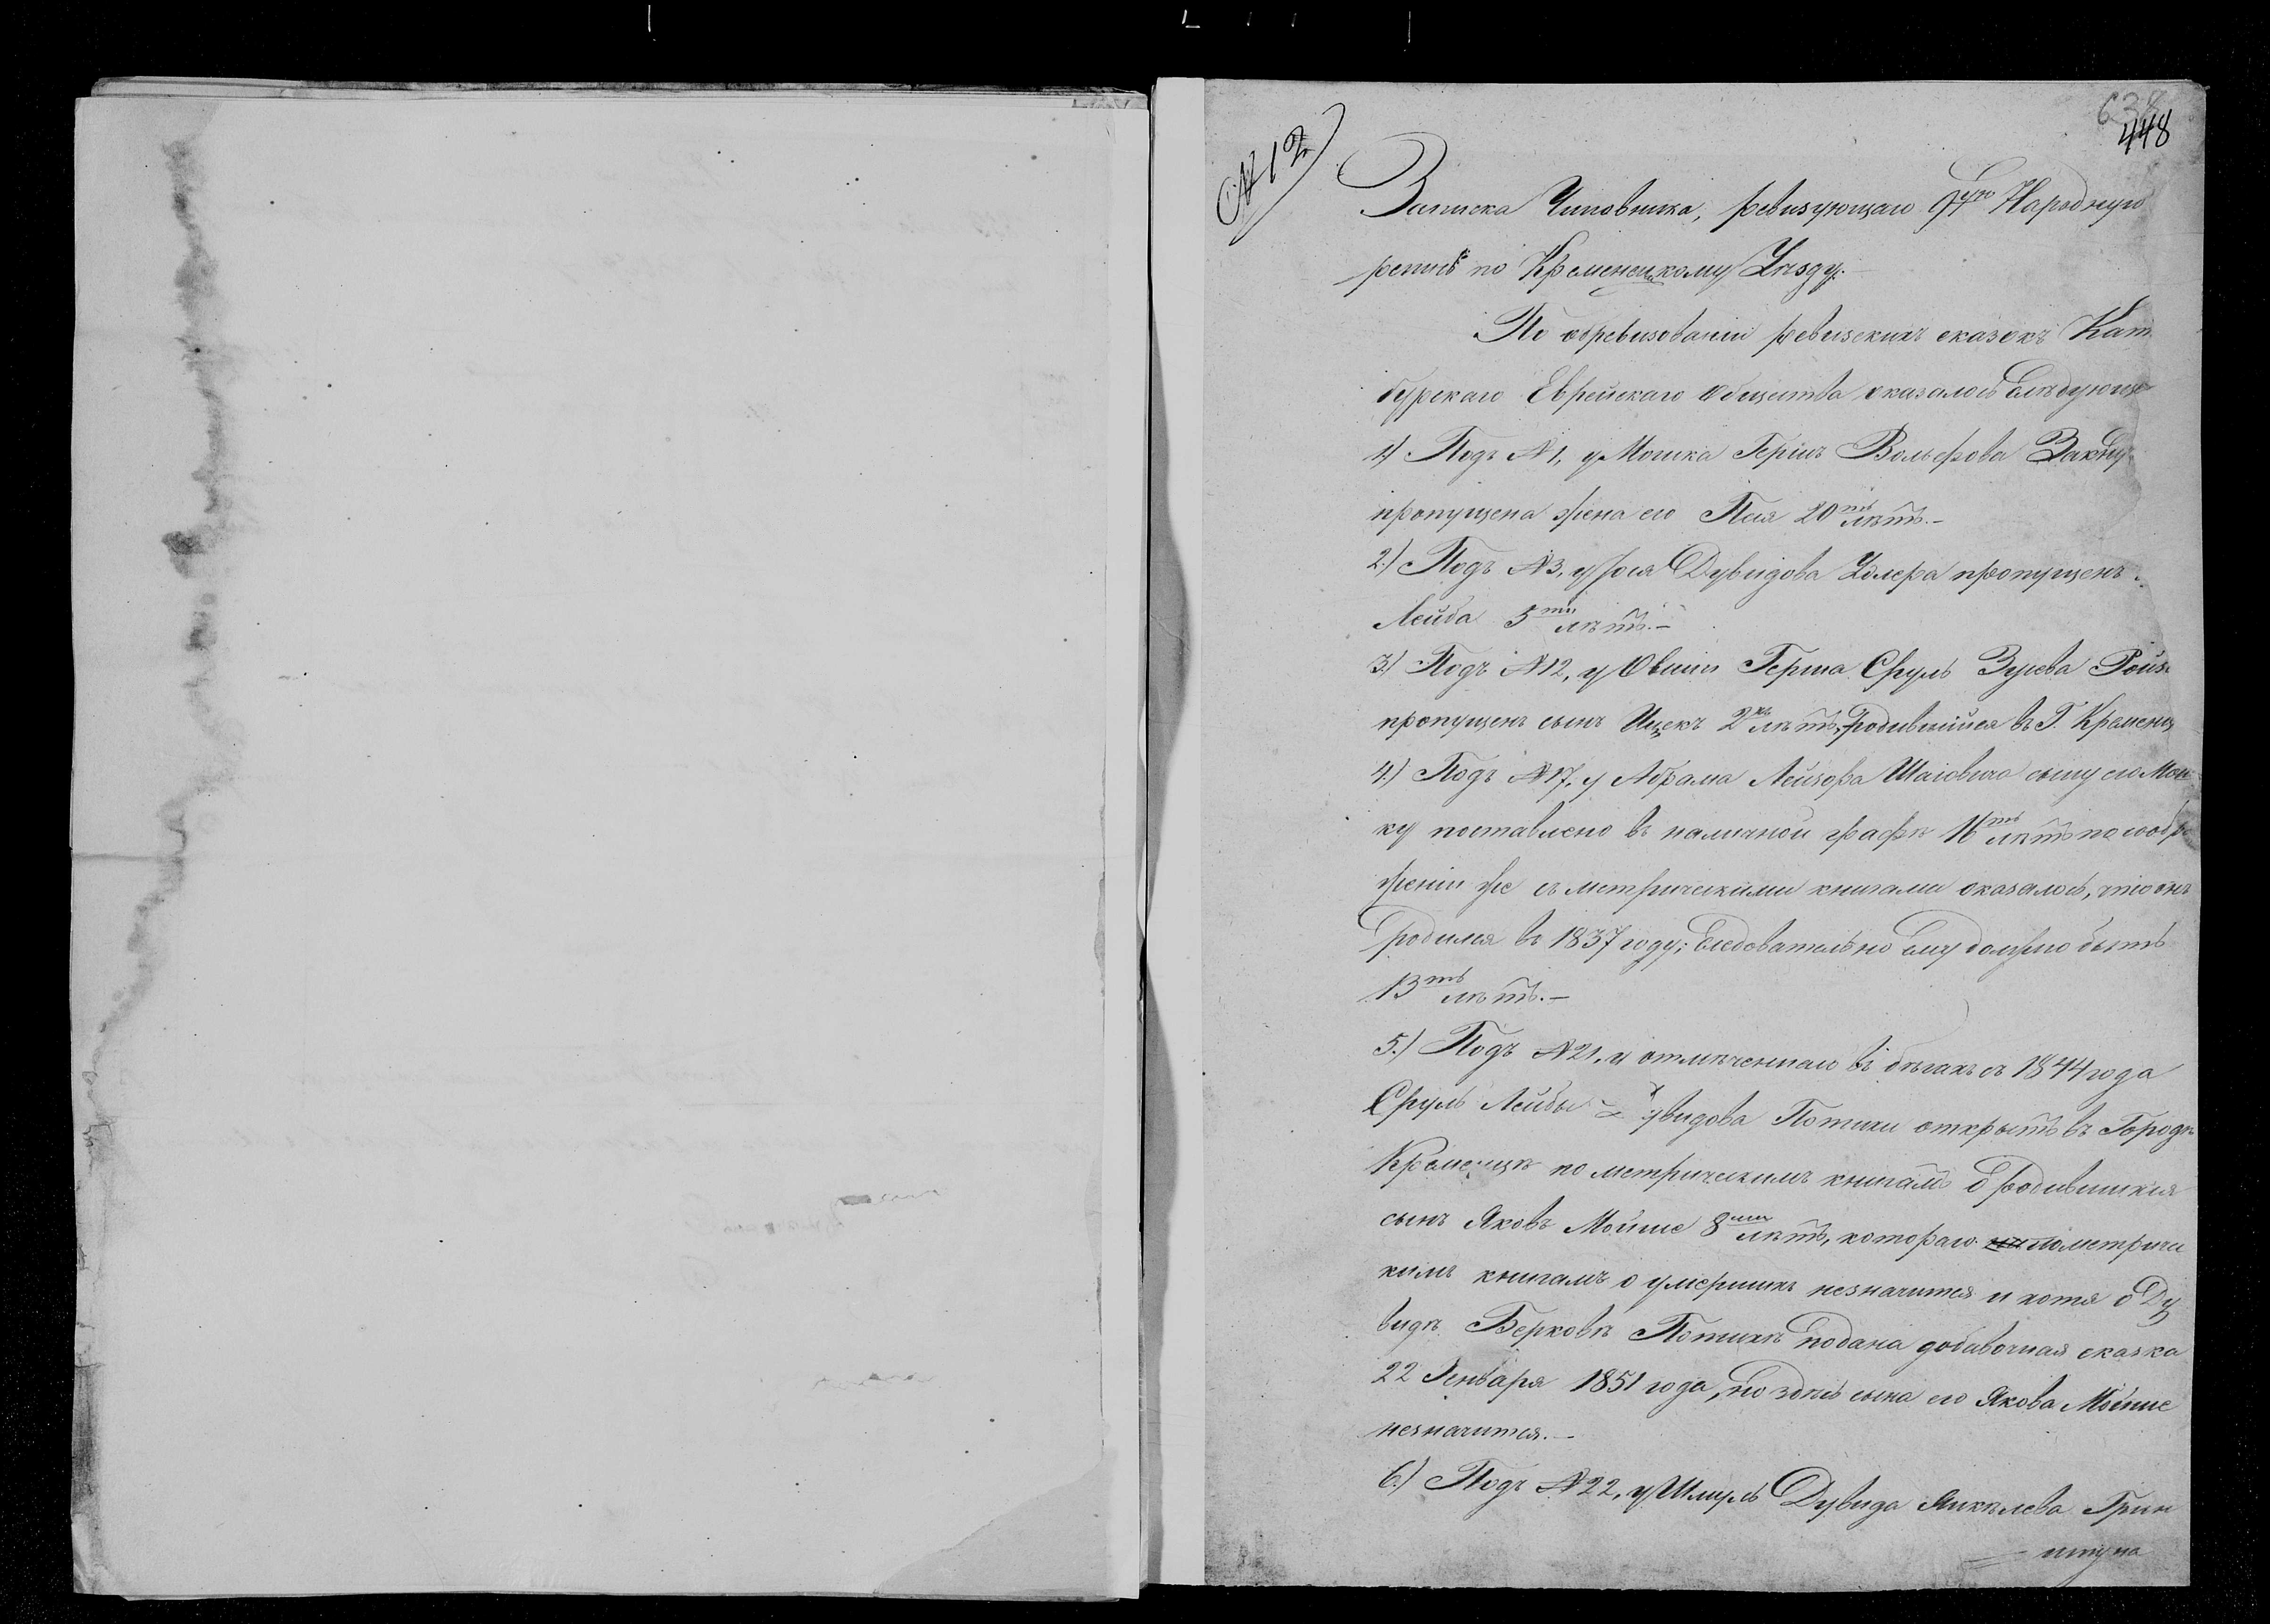 638
448
№ 12
Записка Чиновника, ревизующаго 9ую Народную
репись по Кременецкому Уѣзду.
По обревизованіи ревизскихъ сказокъ Кат
бурскаго Еврейскаго Общества оказалось слѣдующе
1) Подъ №1, у Мошка Герша Вольфова
пропущена жена его Пея 20ть лѣтъ.-
2.) Подъ №3, у Іося Дувидова пропущенъ
Лейба 5ти лѣтъ.-
3.) Подъ №12, у Овши Герша Сруль Зусева Ройз
пропущенъ сынъ Ицекъ 2хъ лѣтъ, родившійся въ Г. Кременц
4.) Подъ №17, у Абрама Лейзора Шаіовича сыну его Мош
ку поставлено въ наличной графѣ 16ть лѣтъ по сообра
женіи же съ метрическими книгами оказалось, что онъ
родился въ 1837 году; следовательно ему должно быть
13ть лѣтъ.-
5.) Подъ №21, у отмѣченнаго въ бѣгахъ съ 1844 года
Сруль Лейбы Дувидова Потихи открытъ въ Городѣ
Кременцѣ по метрическимъ книгамъ о родившихся
сынъ Яковъ Мойше 8ми лѣтъ, котораго по метриче
кимъ книгамъ о умершихъ незначится и хотя о Ду
видѣ Берковѣ Потихѣ подана добавочная сказка
22 Генваря 1851 года, но здѣсь сына его Якова Мойше
незначится.-
6.) Подъ №22, у Шмуль Дувида Янкелева Грин
штупа